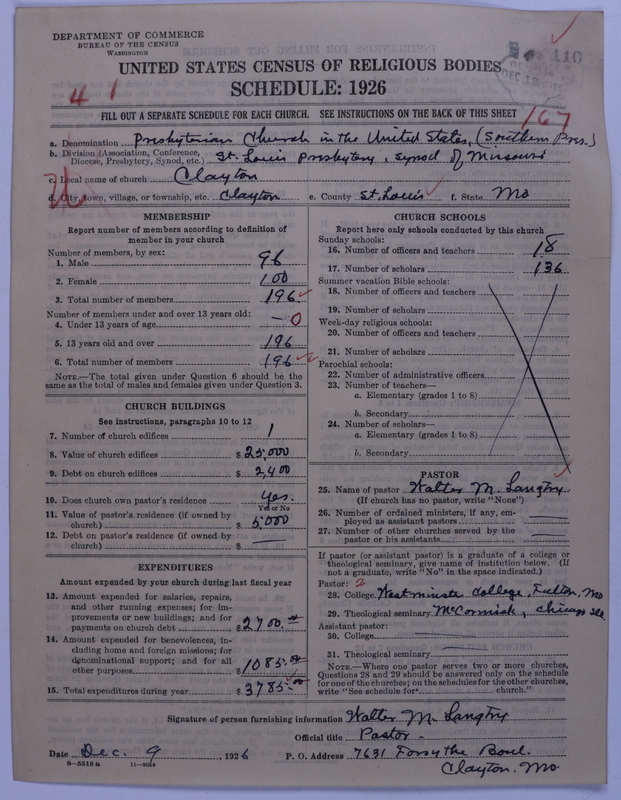 DEPARTMENT OF COMMERCE
BUREAU OF THE CENSUS
WASHINGTON
110
DEC 13
UNITED STATES CENSUS OF RELIGIOUS BODIES
SCHEDULE: 1926
4 1
FILL OUT A SEPARATE SCHEDULE FOR EACH CHURCH. SEE INSTRUCTIONS ON THE BACK OF THIS SHEET
167
a. Denomination Presbyterian Church in the United States, (Southern Pres.)
b. Division (Association, Conference, Diocese, Presbytery, Synod, etc.) St. Louis Presbytery, Synod of Missouri
c. Local name of church Clayton
d. City, town, village, or township, etc. Clayton e. County St. Louis f. State Mo
MEMBERSHIP
Report number of members according to definition of
member in your church
Number of members, by sex:
1. Male 96
2. Female 100
3. Total number of members 196
Number of members under and over 13 years old:
4. Under 13 years of age — 0
5. 13 years old and over 196
6. Total number of members 196
NOTE.—The total given under Question 6 should be the
same as the total of males and females given under Question 3.
CHURCH BUILDINGS
See instructions, paragraphs 10 to 12
7. Number of church edifices 1
8. Value of church edifices $ 25,000
9. Debt on church edifices $ 2,400
10. Does church own pastor's residence Yes.
Yes or No
11. Value of pastor's residence (if owned by
church) $ 5,000
12. Debt on pastor's residence (if owned by
church) $ —
EXPENDITURES
Amount expended by your church during last fiscal year
13. Amount expended for salaries, repairs,
and other running expenses; for im-
provements or new buildings; and for
payments on church debt $ 2700.00
14. Amount expended for benevolences, in-
cluding home and foreign missions; for
denominational support; and for all
other purposes $ 1085.00
15. Total expenditures during year $ 3785.00
CHURCH SCHOOLS
Report here only schools conducted by this church
Sunday schools:
16. Number of officers and teachers 18
17. Number of scholars 136
Summer vacation Bible schools:
18. Number of officers and teachers
19. Number of scholars
Week-day religious schools:
20. Number of officers and teachers
21. Number of scholars
Parochial schools:
22. Number of administrative officers
23. Number of teachers—
a. Elementary (grades 1 to 8)
b. Secondary
24. Number of scholars—
a. Elementary (grades 1 to 8)
b. Secondary
PASTOR
25. Name of pastor Walter M. Langtry
(If church has no pastor, write "None")
26. Number of ordained ministers, if any, em-
ployed as assistant pastors —
27. Number of other churches served by the
pastor or his assistants —
If pastor (or assistant pastor) is a graduate of a college or
theological seminary, give name of institution below. (If
not a graduate, write "No" in the space indicated.)
Pastor: 2
28. College Westminster College, Fulton, Mo
29. Theological seminary McCormick, Chicago Ill.
Assistant pastor:
30. College
31. Theological seminary
NOTE.—Where one pastor serves two or more churches,
Questions 28 and 29 should be answered only on the schedule
for one of the churches; on the schedules for the other churches,
write "See schedule for church."
Signature of person furnishing information Walter M. Langtry
Official title Pastor.
Date Dec. 9, 1926 P. O. Address 7631 Forsythe Boul.
8—5518 a 11—9054 Clayton, Mo.